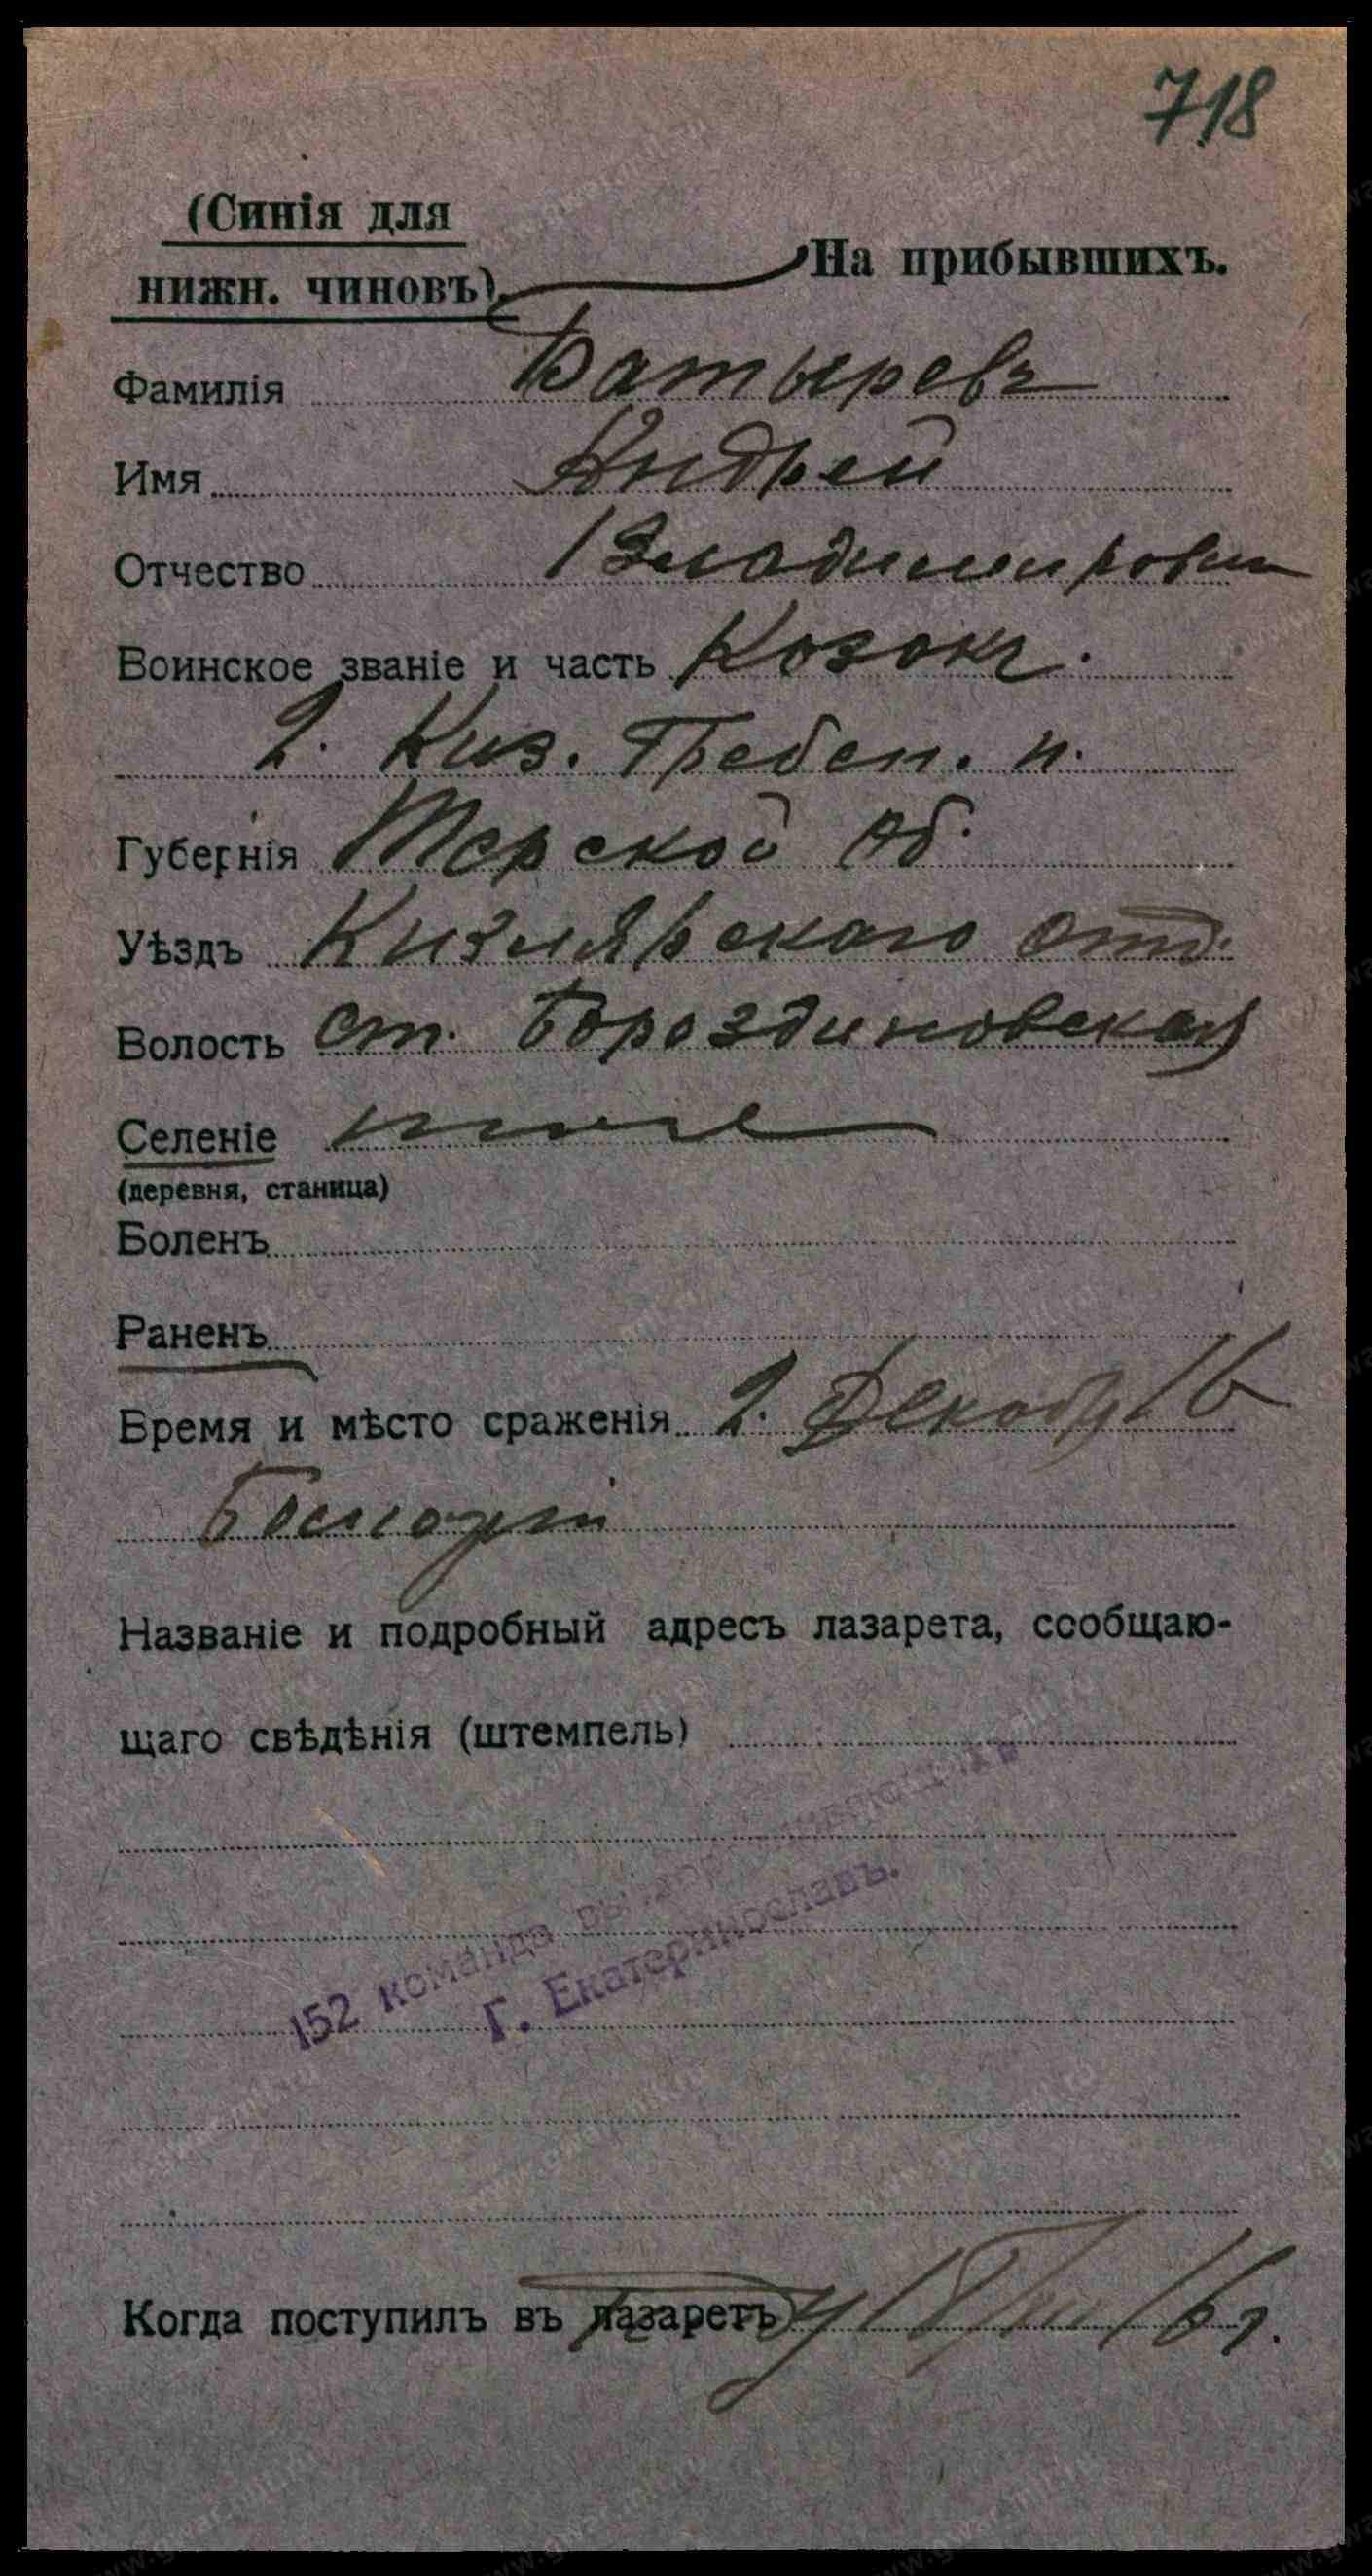 718
(Синія для
нижн. чиновъ).
На прибывшихъ.
Фамилія Батыревъ
Имя Андрей
Отчество Владимирович
Воинское званіе и часть Козокъ.
2. Киз. Гребен. п.
Губернія Терской об.
Уѣздъ Кизлярскаго отд.
Волость ст. Бороздиновская
Селеніе
(деревня, станица)
Боленъ
Раненъ
Время и мѣсто сраженія 2. Декабр 16
Названіе и подробный адресъ лазарета, сообщаю-
щаго свѣдѣнія (штемпель)
152 команда выздоравливающихъ
Г. Екатеринославъ.
Когда поступилъ въ лазаретъ 16 г.